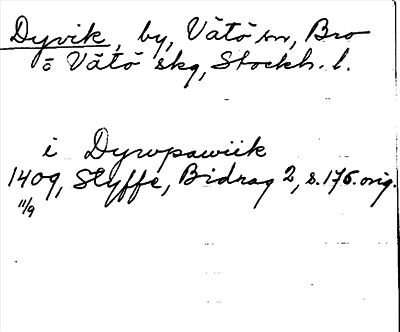 Dyvik, by, Vätö sn, Bro
o Vätö skg, Stockh. l.
i Dyrwpawiik
1409, Styffe, Bidrag 2, s. 176. orig.
11/9